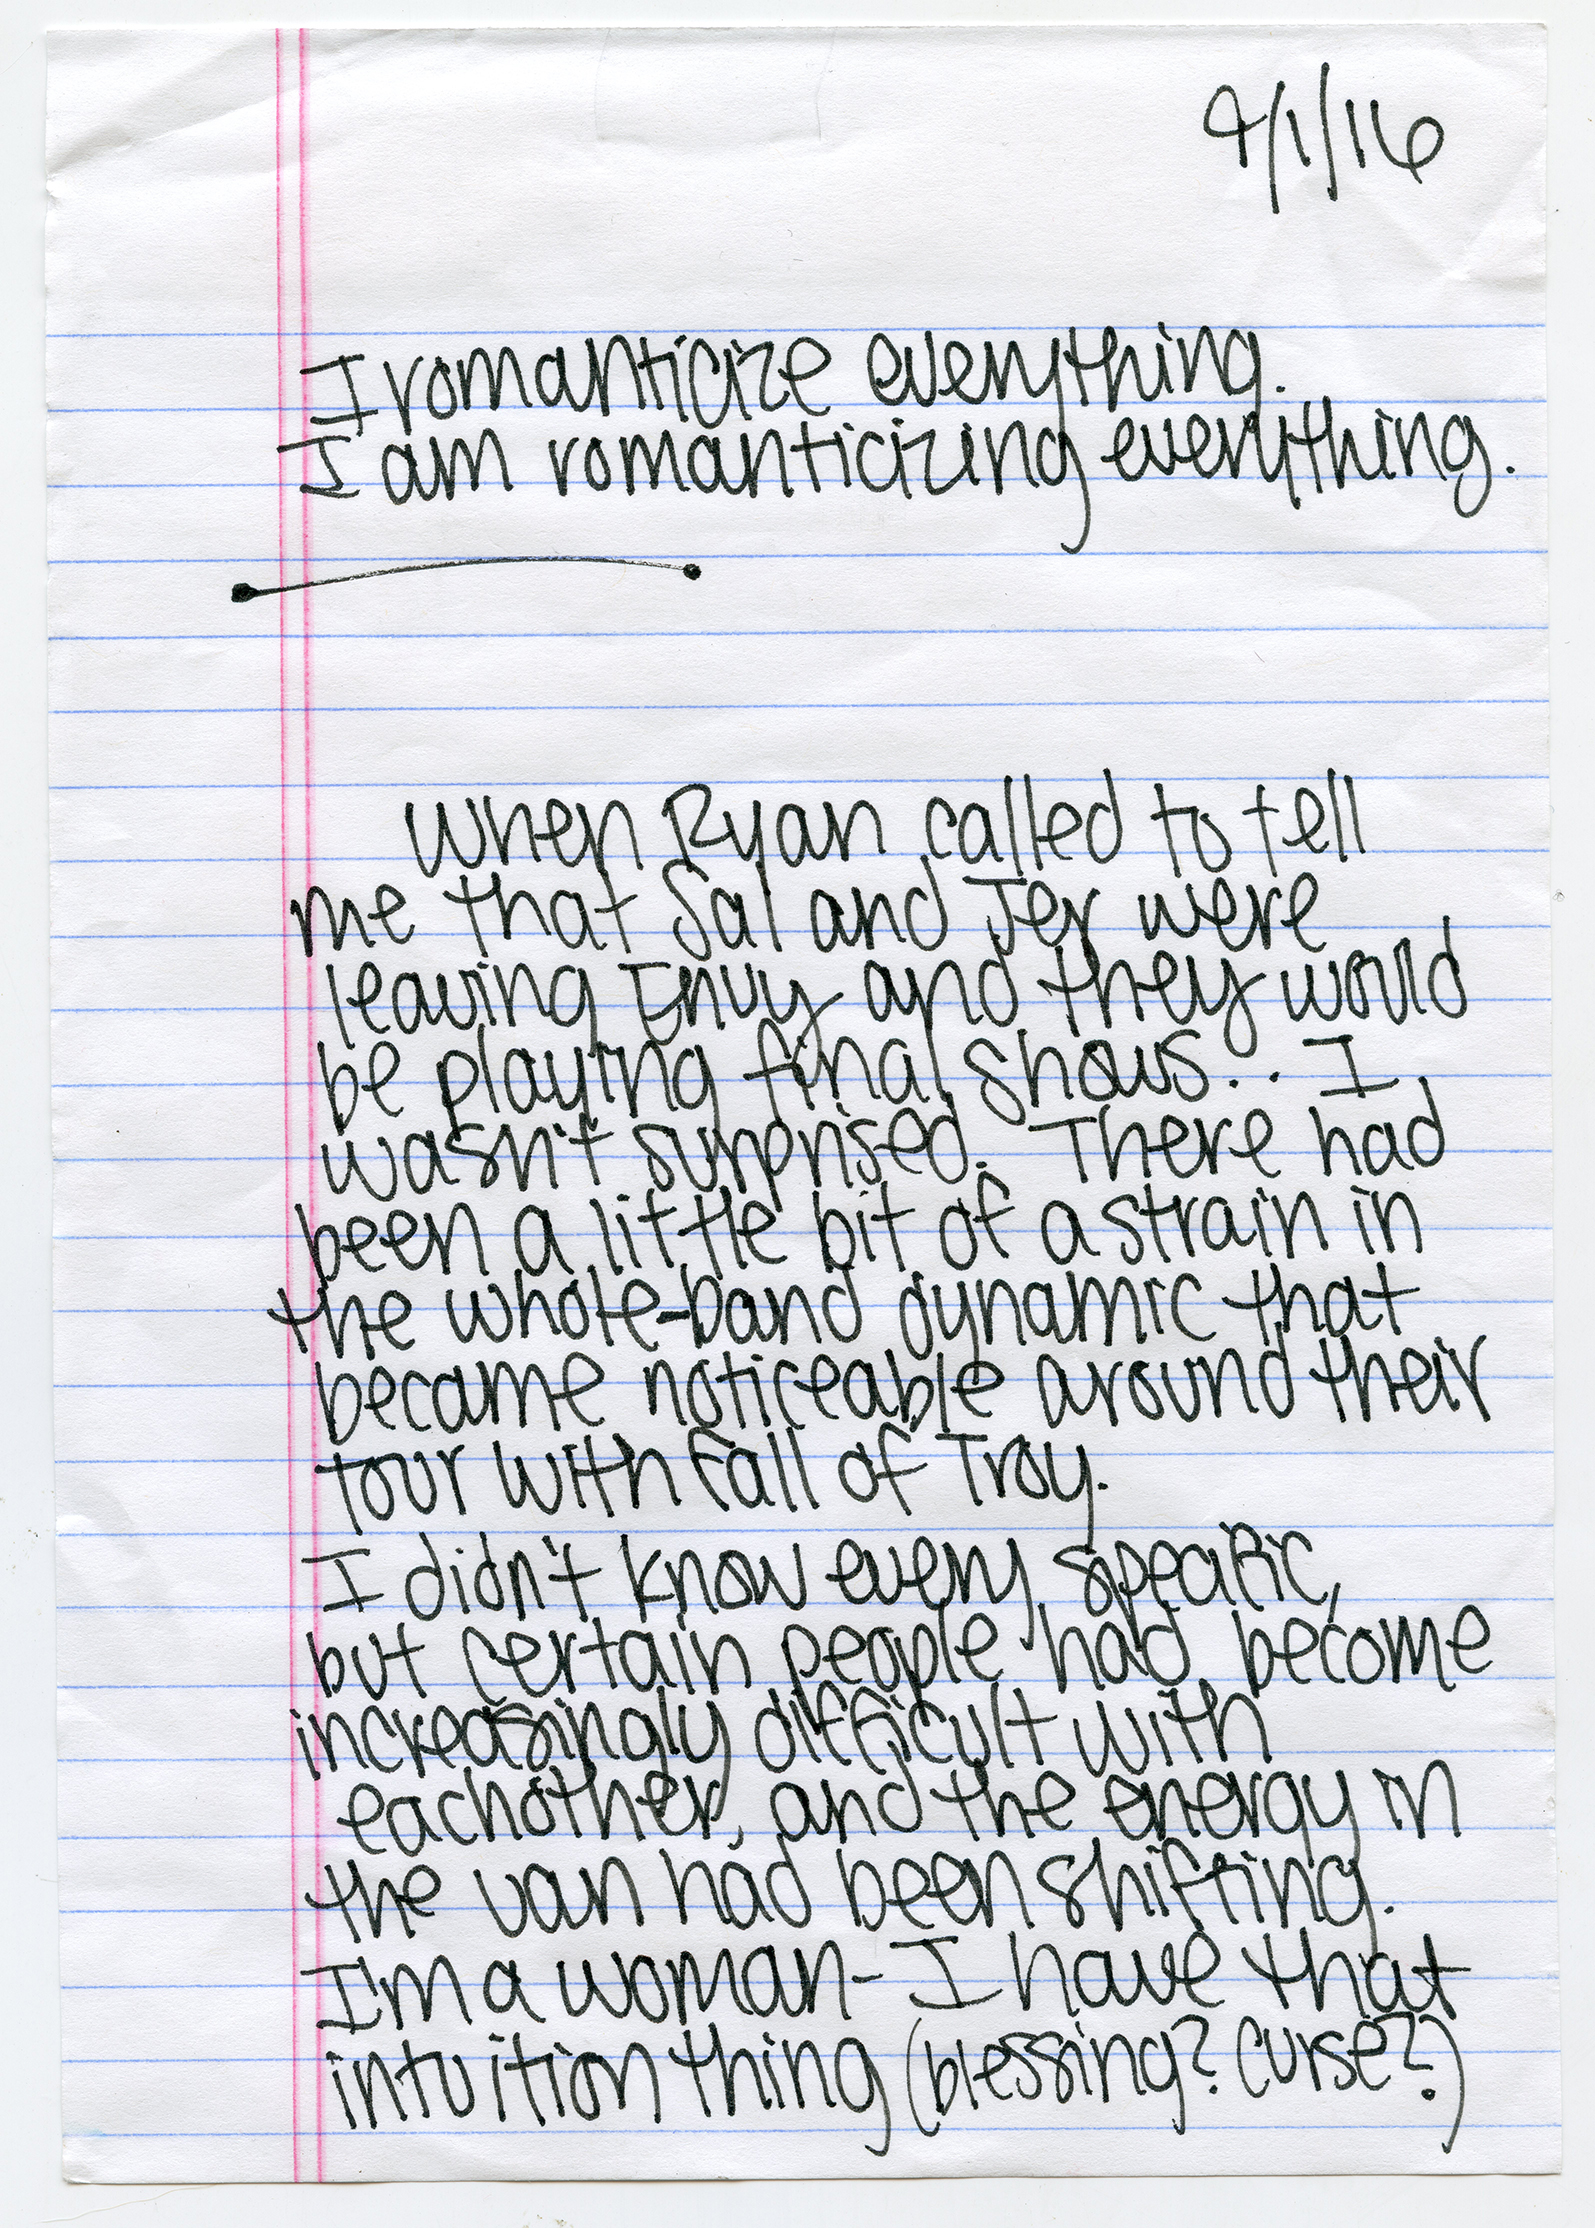 9/1/16
I romanticize everything.
I am romanticizing everything.
When Ryan called to tell
me that Sal and Jer were
leaving Envy and they would
be playing final shows... I
wasn't surprised. There had
been a little bit of a strain in
the whole-band dynamic that
became noticeable around their
tour with Fall of Troy.
I didn't know every specific,
but certain people had become
increasingly difficult with
eachother, and the energy in
the van had been shifting.
I'm a woman - I have that
intuition thing (blessing? curse?)